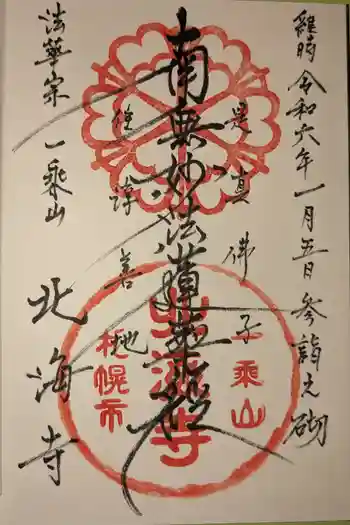 維時令和六年一月五日参詣之砌
是真佛子
南無妙法蓮華経
住淳善地
法華宗 一乗山
北海寺
一乗山
北海寺
札幌市